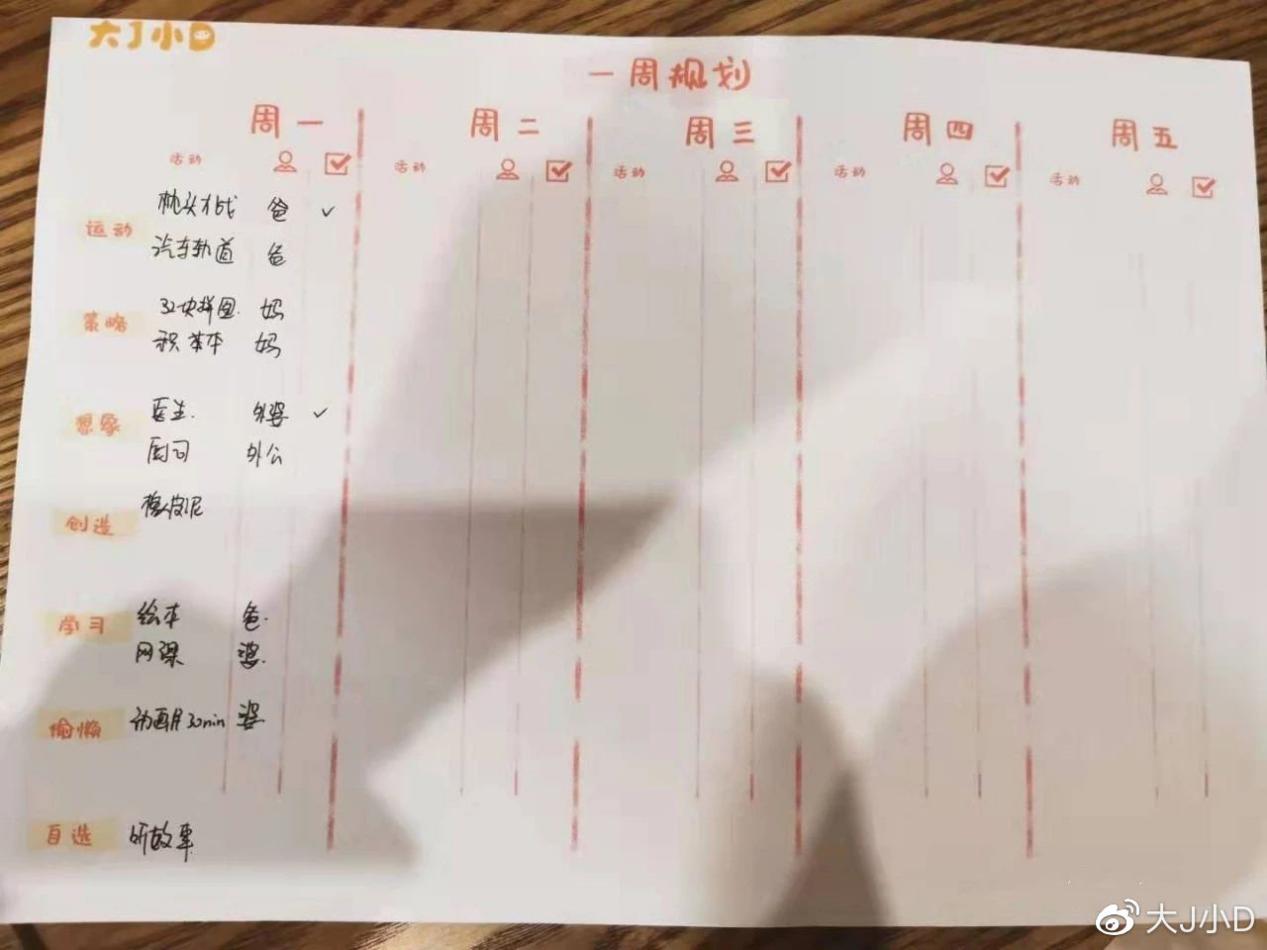 大J小D
一周规划
周一 周二 周三 周四 周五
活动 活动 活动 活动 活动
运动
枕头大战 爸 ✓
汽车轨道 爸
策略
32块拼图 妈
积木 妈
想象
医生 外婆 ✓
厨司 外公
创造
橡皮泥
学习
绘本 爸
网课 婆
偷懒
动画片30min 婆
自选
听故事
大J小D